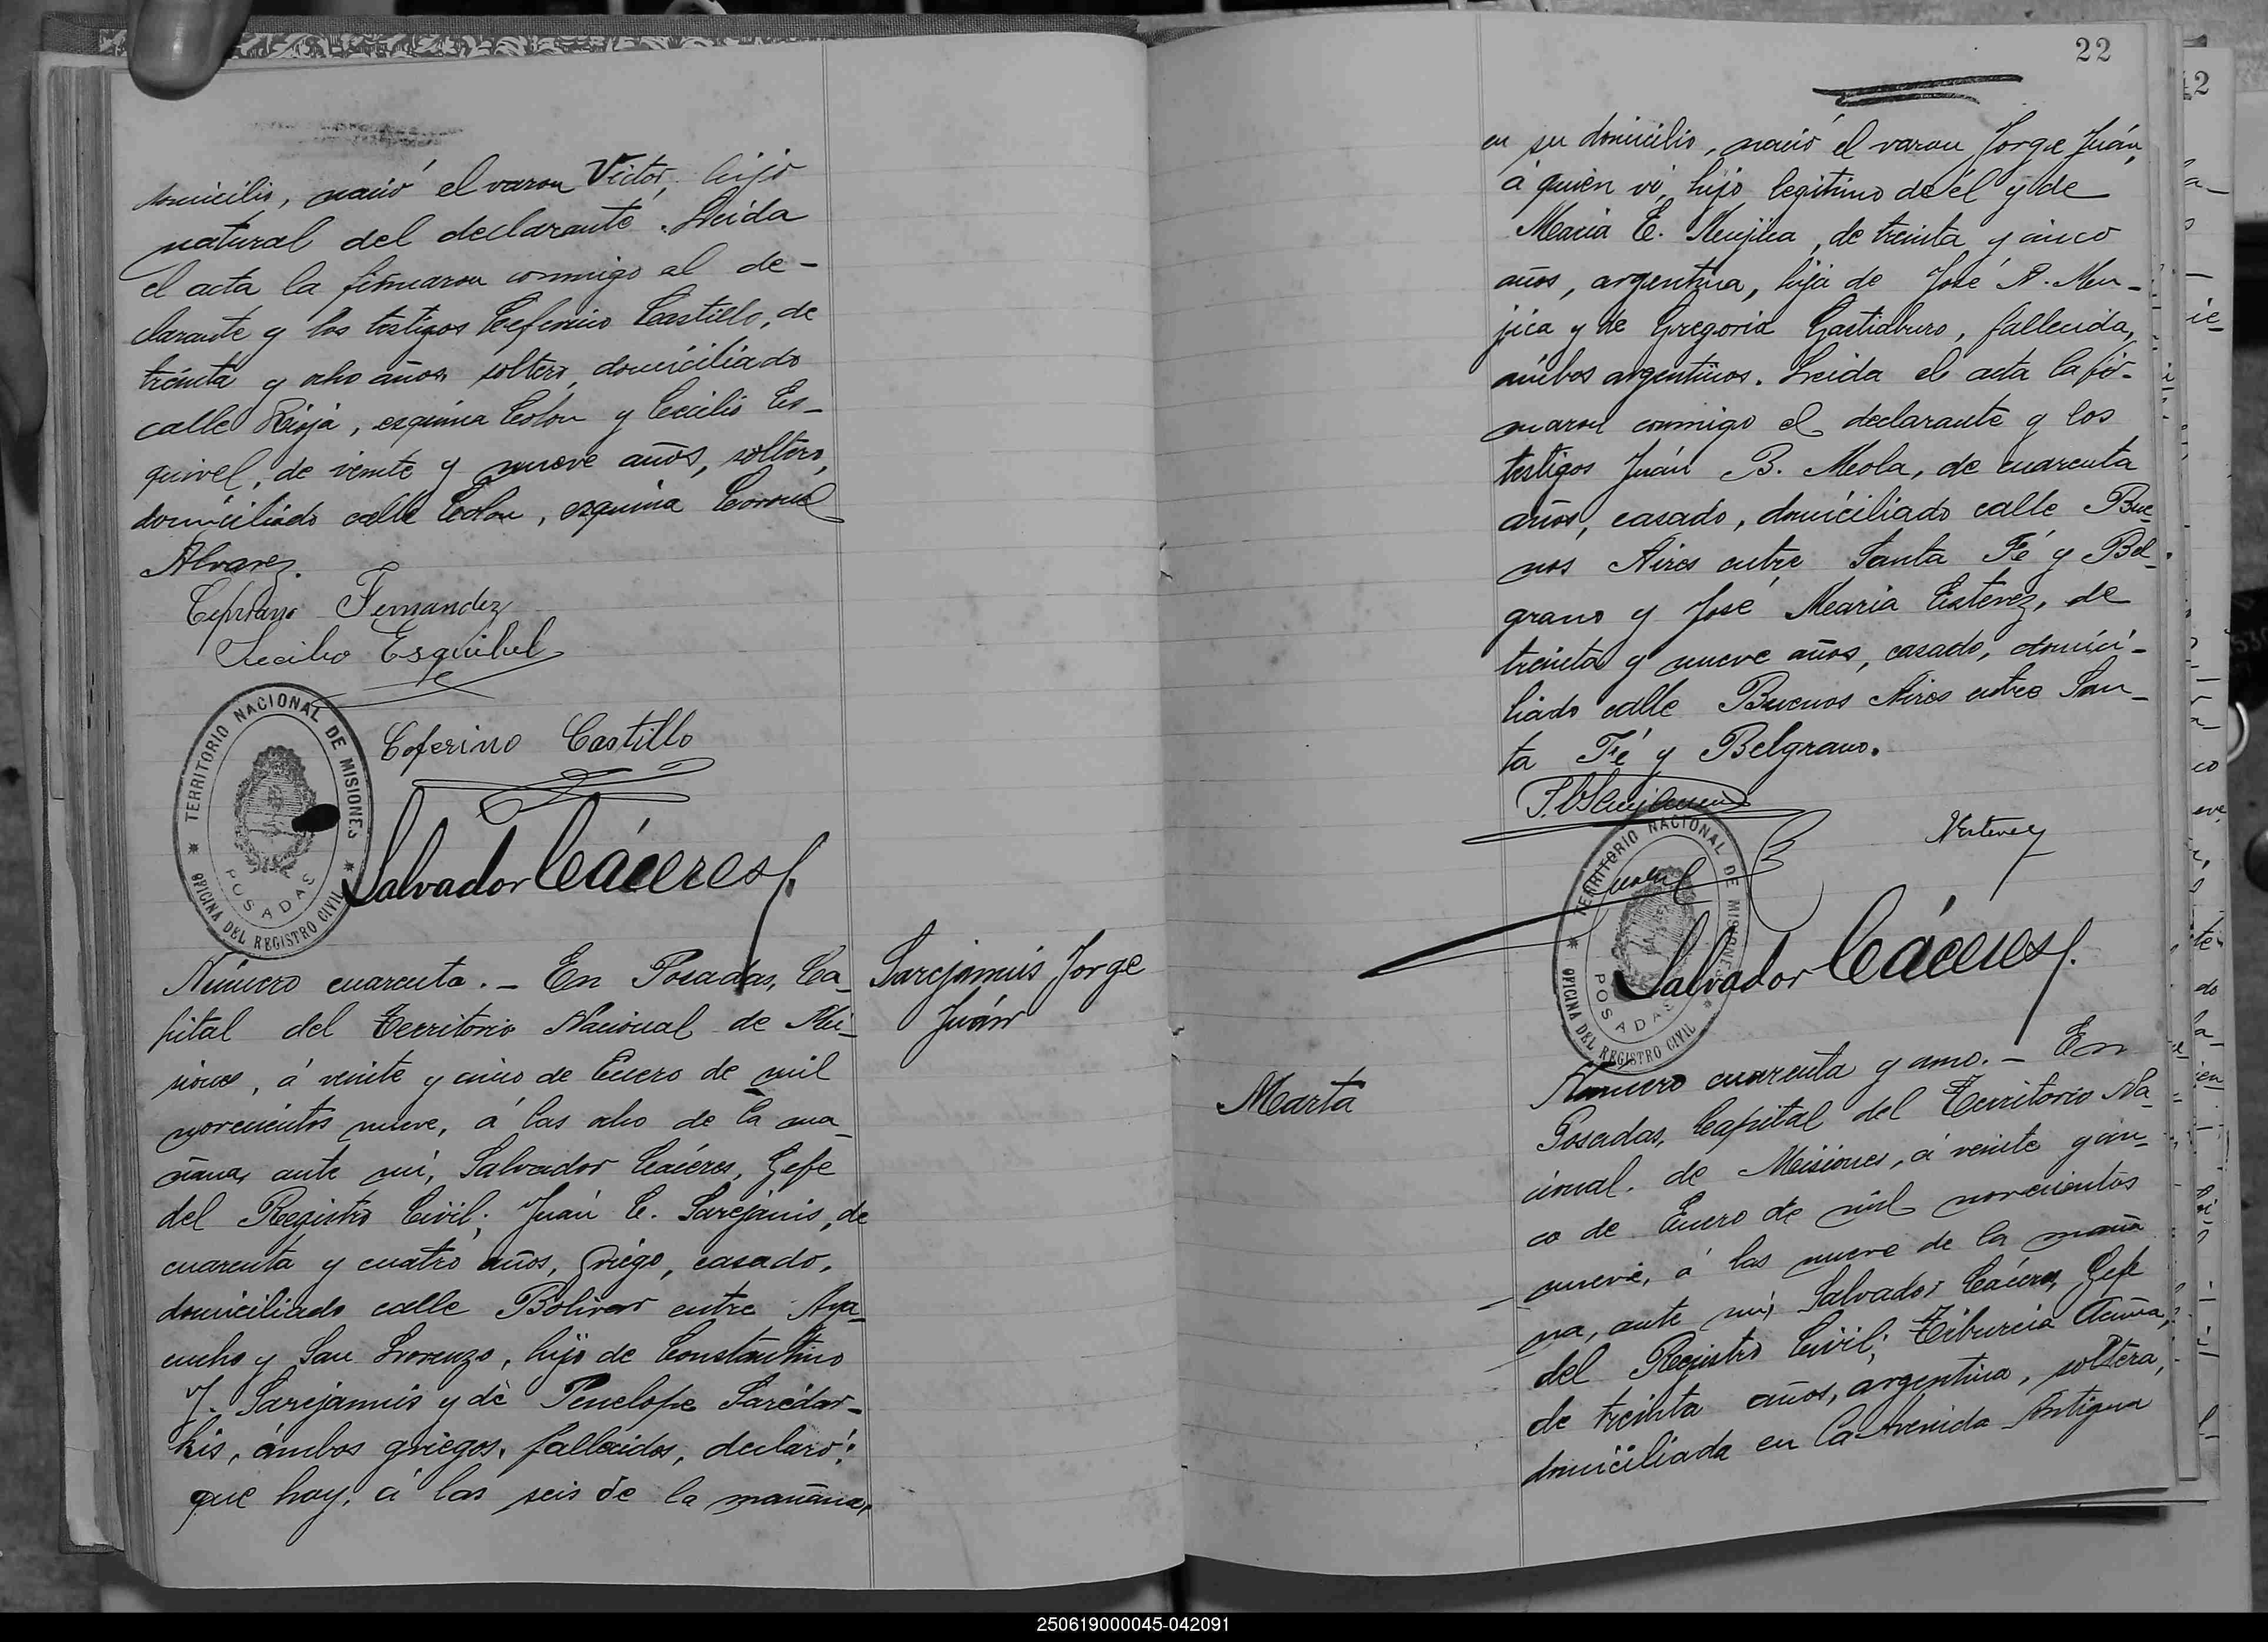 domicilio, nació el varon Victor, hijo
natural del declarante. Leida
el acta la firmaron conmigo el de-
clarante y los testigos Ceferino Castillo, de
treinta y ocho años, soltero, domiciliado
calle Rioja, esquina Colon y Cecilio Es-
quivel, de veinte y nueve años, soltero,
domiciliado calle Colon, esquina Coronel
Alvarez.
Cipriano Fernandez
Secilio Esquibel
Ceferino Castillo
TERRITORIO NACIONAL DE MISIONES
OFICINA DEL REGISTRO CIVIL
POSADAS
Salvador Cáceres
Número cuarenta. - En Posadas, Ca-
pital del Territorio Nacional de Mi-
siones, á veinte y cinco de Enero de mil
novecientos nueve, á las ocho de la ma-
ñana, ante mí, Salvador Cáceres, Gefe
del Registro Civil; Juán C. Sarejanis, de
cuarenta y cuatro años, griego, casado,
domiciliado calle Bolivar entre Aya-
cucho y San Lorenzo, hijo de Constantino
J. Sarejannis y de Penelope Saredar-
kis, ámbos griegos, fallecidos, declaró:
que hoy, á las seis de la mañana,
Sarejannis Jorge
Juán
22
en su domicilio, nació el varon Jorge Juán,
á quien ví, hijo legitimo de él y de
Maria E. Mujica, de treinta y cinco
años, argentina, hija de José N. Mu-
jica y de Gregoria Gastiaburo, fallecida,
ámbos argentinos. Leida el acta la fir-
maron conmigo el declarante y los
testigos Juán B. Meola, de cuarenta
años, casado, domiciliado calle Bue-
nos Aires entre Santa Fé y Bel-
grano y José Maria Estevez, de
treinta y nueve años, casado, domici-
liado calle Buenos Aires entre San-
ta Fé y Belgrano.
TERRITORIO NACIONAL DE MISIONES
OFICINA DEL REGISTRO CIVIL
POSADAS
Salvador Cáceres
Marta
Número cuarenta y uno. - En
Posadas, Capital del Territorio Na-
cional de Misiones, á veinte y cin-
co de Enero de mil novecientos
nueve, á las nueve de la maña
na, ante mí, Salvador Cáceres, Gefe
del Registro Civil; Tiburcia Acuña,
de treinta años, argentina, soltera,
domiciliada en la Avenida Antigua
250619000045-042091